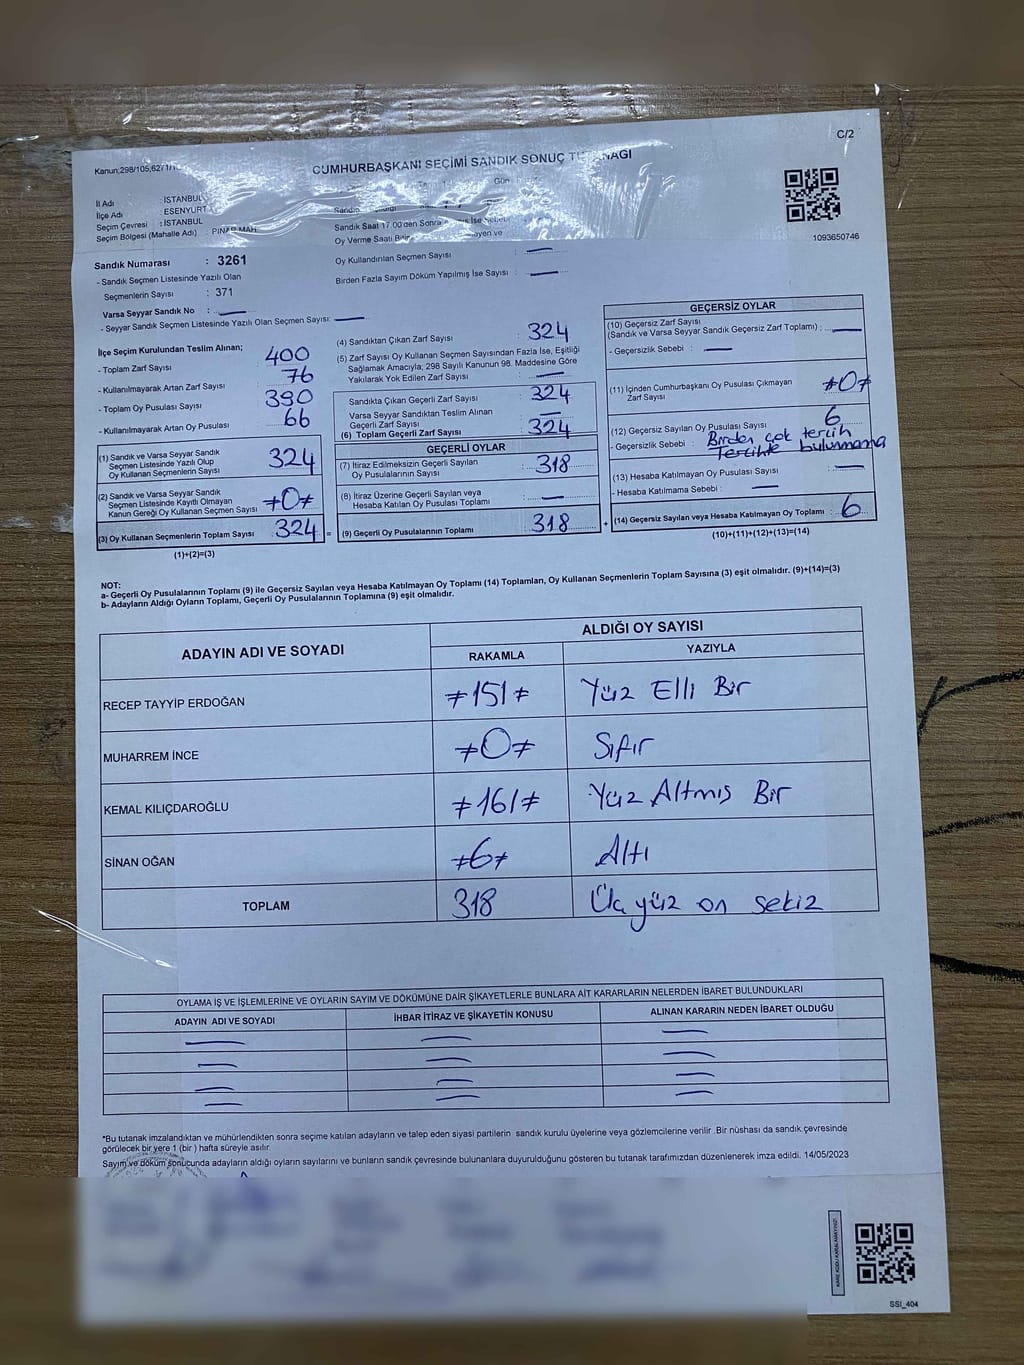 C/2
Kanun;298/105,62/1/1
CUMHURBAŞKANI SEÇİMİ SANDIK SONUÇ
İl Adı : İSTANBUL
İlçe Adı : ESENYURT
Seçim Çevresi : İSTANBUL
Seçim Bölgesi (Mahalle Adı) : PINAR MAH.
Gün
Sandık Saat 17.00'den Sonra
Oy Verme Saati
1093650746
Sandık Numarası : 3261
- Sandık Seçmen Listesinde Yazılı Olan
Seçmenlerin Sayısı : 371
Varsa Seyyar Sandık No :
- Seyyar Sandık Seçmen Listesinde Yazılı Olan Seçmen Sayısı:
Oy Kullandırılan Seçmen Sayısı :
Birden Fazla Sayım Döküm Yapılmış İse Sayısı :
İlçe Seçim Kurulundan Teslim Alınan;
- Toplam Zarf Sayısı : 400
- Kullanılmayarak Artan Zarf Sayısı : 76
- Toplam Oy Pusulası Sayısı : 390
- Kullanılmayarak Artan Oy Pusulası : 66
(1) Sandık ve Varsa Seyyar Sandık
Seçmen Listesinde Yazılı Olup
Oy Kullanan Seçmenlerin Sayısı : 324
(2) Sandık ve Varsa Seyyar Sandık
Seçmen Listesinde Kayıtlı Olmayan
Kanun Gereği Oy Kullanan Seçmen Sayısı : ≠0≠
(3) Oy Kullanan Seçmenlerin Toplam Sayısı : 324 =
(1)+(2)=(3)
(4) Sandıktan Çıkan Zarf Sayısı : 324
(5) Zarf Sayısı Oy Kullanan Seçmen Sayısından Fazla İse, Eşitliği
Sağlamak Amacıyla; 298 Sayılı Kanunun 98. Maddesine Göre
Yakılarak Yok Edilen Zarf Sayısı :
Sandıkta Çıkan Geçerli Zarf Sayısı : 324
Varsa Seyyar Sandıktan Teslim Alınan
Geçerli Zarf Sayısı :
(6) Toplam Geçerli Zarf Sayısı : 324
GEÇERLİ OYLAR
(7) İtiraz Edilmeksizin Geçerli Sayılan
Oy Pusulalarının Sayısı : 318
(8) İtiraz Üzerine Geçerli Sayılan veya
Hesaba Katılan Oy Pusulası Toplamı :
(9) Geçerli Oy Pusulalarının Toplamı : 318 +
GEÇERSİZ OYLAR
(10) Geçersiz Zarf Sayısı
(Sandık ve Varsa Seyyar Sandık Geçersiz Zarf Toplamı) :
- Geçersizlik Sebebi :
(11) İçinden Cumhurbaşkanı Oy Pusulası Çıkmayan
Zarf Sayısı : ≠0≠
(12) Geçersiz Sayılan Oy Pusulası Sayısı : 6
- Geçersizlik Sebebi : Birden çok tercih
Tercihte bulunmama
(13) Hesaba Katılmayan Oy Pusulası Sayısı :
- Hesaba Katılmama Sebebi :
(14) Geçersiz Sayılan veya Hesaba Katılmayan Oy Toplamı : 6
(10)+(11)+(12)+(13)=(14)
NOT:
a- Geçerli Oy Pusulalarının Toplamı (9) ile Geçersiz Sayılan veya Hesaba Katılmayan Oy Toplamı (14) Toplamları, Oy Kullanan Seçmenlerin Toplam Sayısına (3) eşit olmalıdır. (9)+(14)=(3)
b- Adayların Aldığı Oyların Toplamı, Geçerli Oy Pusulalarının Toplamına (9) eşit olmalıdır.
ADAYIN ADI VE SOYADI
ALDIĞI OY SAYISI
RAKAMLA YAZIYLA
RECEP TAYYİP ERDOĞAN ≠151≠ Yüz Elli Bir
MUHARREM İNCE ≠0≠ Sıfır
KEMAL KILIÇDAROĞLU ≠161≠ Yüz Altmış Bir
SİNAN OĞAN ≠6≠ Altı
TOPLAM 318 Üç yüz on sekiz
OYLAMA İŞ VE İŞLEMLERİNE VE OYLARIN SAYIM VE DÖKÜMÜNE DAİR ŞİKAYETLERLE BUNLARA AİT KARARLARIN NELERDEN İBARET BULUNDUKLARI
ADAYIN ADI VE SOYADI İHBAR İTİRAZ VE ŞİKAYETİN KONUSU ALINAN KARARIN NEDEN İBARET OLDUĞU
*Bu tutanak imzalandıktan ve mühürlendikten sonra seçime katılan adayların ve talep eden siyasi partilerin sandık kurulu üyelerine veya gözlemcilerine verilir. Bir nüshası da sandık çevresinde
görülecek bir yere 1 (bir) hafta süreyle asılır.
Sayım ve döküm sonucunda adayların aldığı oyların sayılarını ve bunların sandık çevresinde bulunanlara duyurulduğunu gösteren bu tutanak tarafımızdan düzenlenerek imza edildi. 14/05/2023
KARE KODU KARALAMAYINIZ!
SSI_404